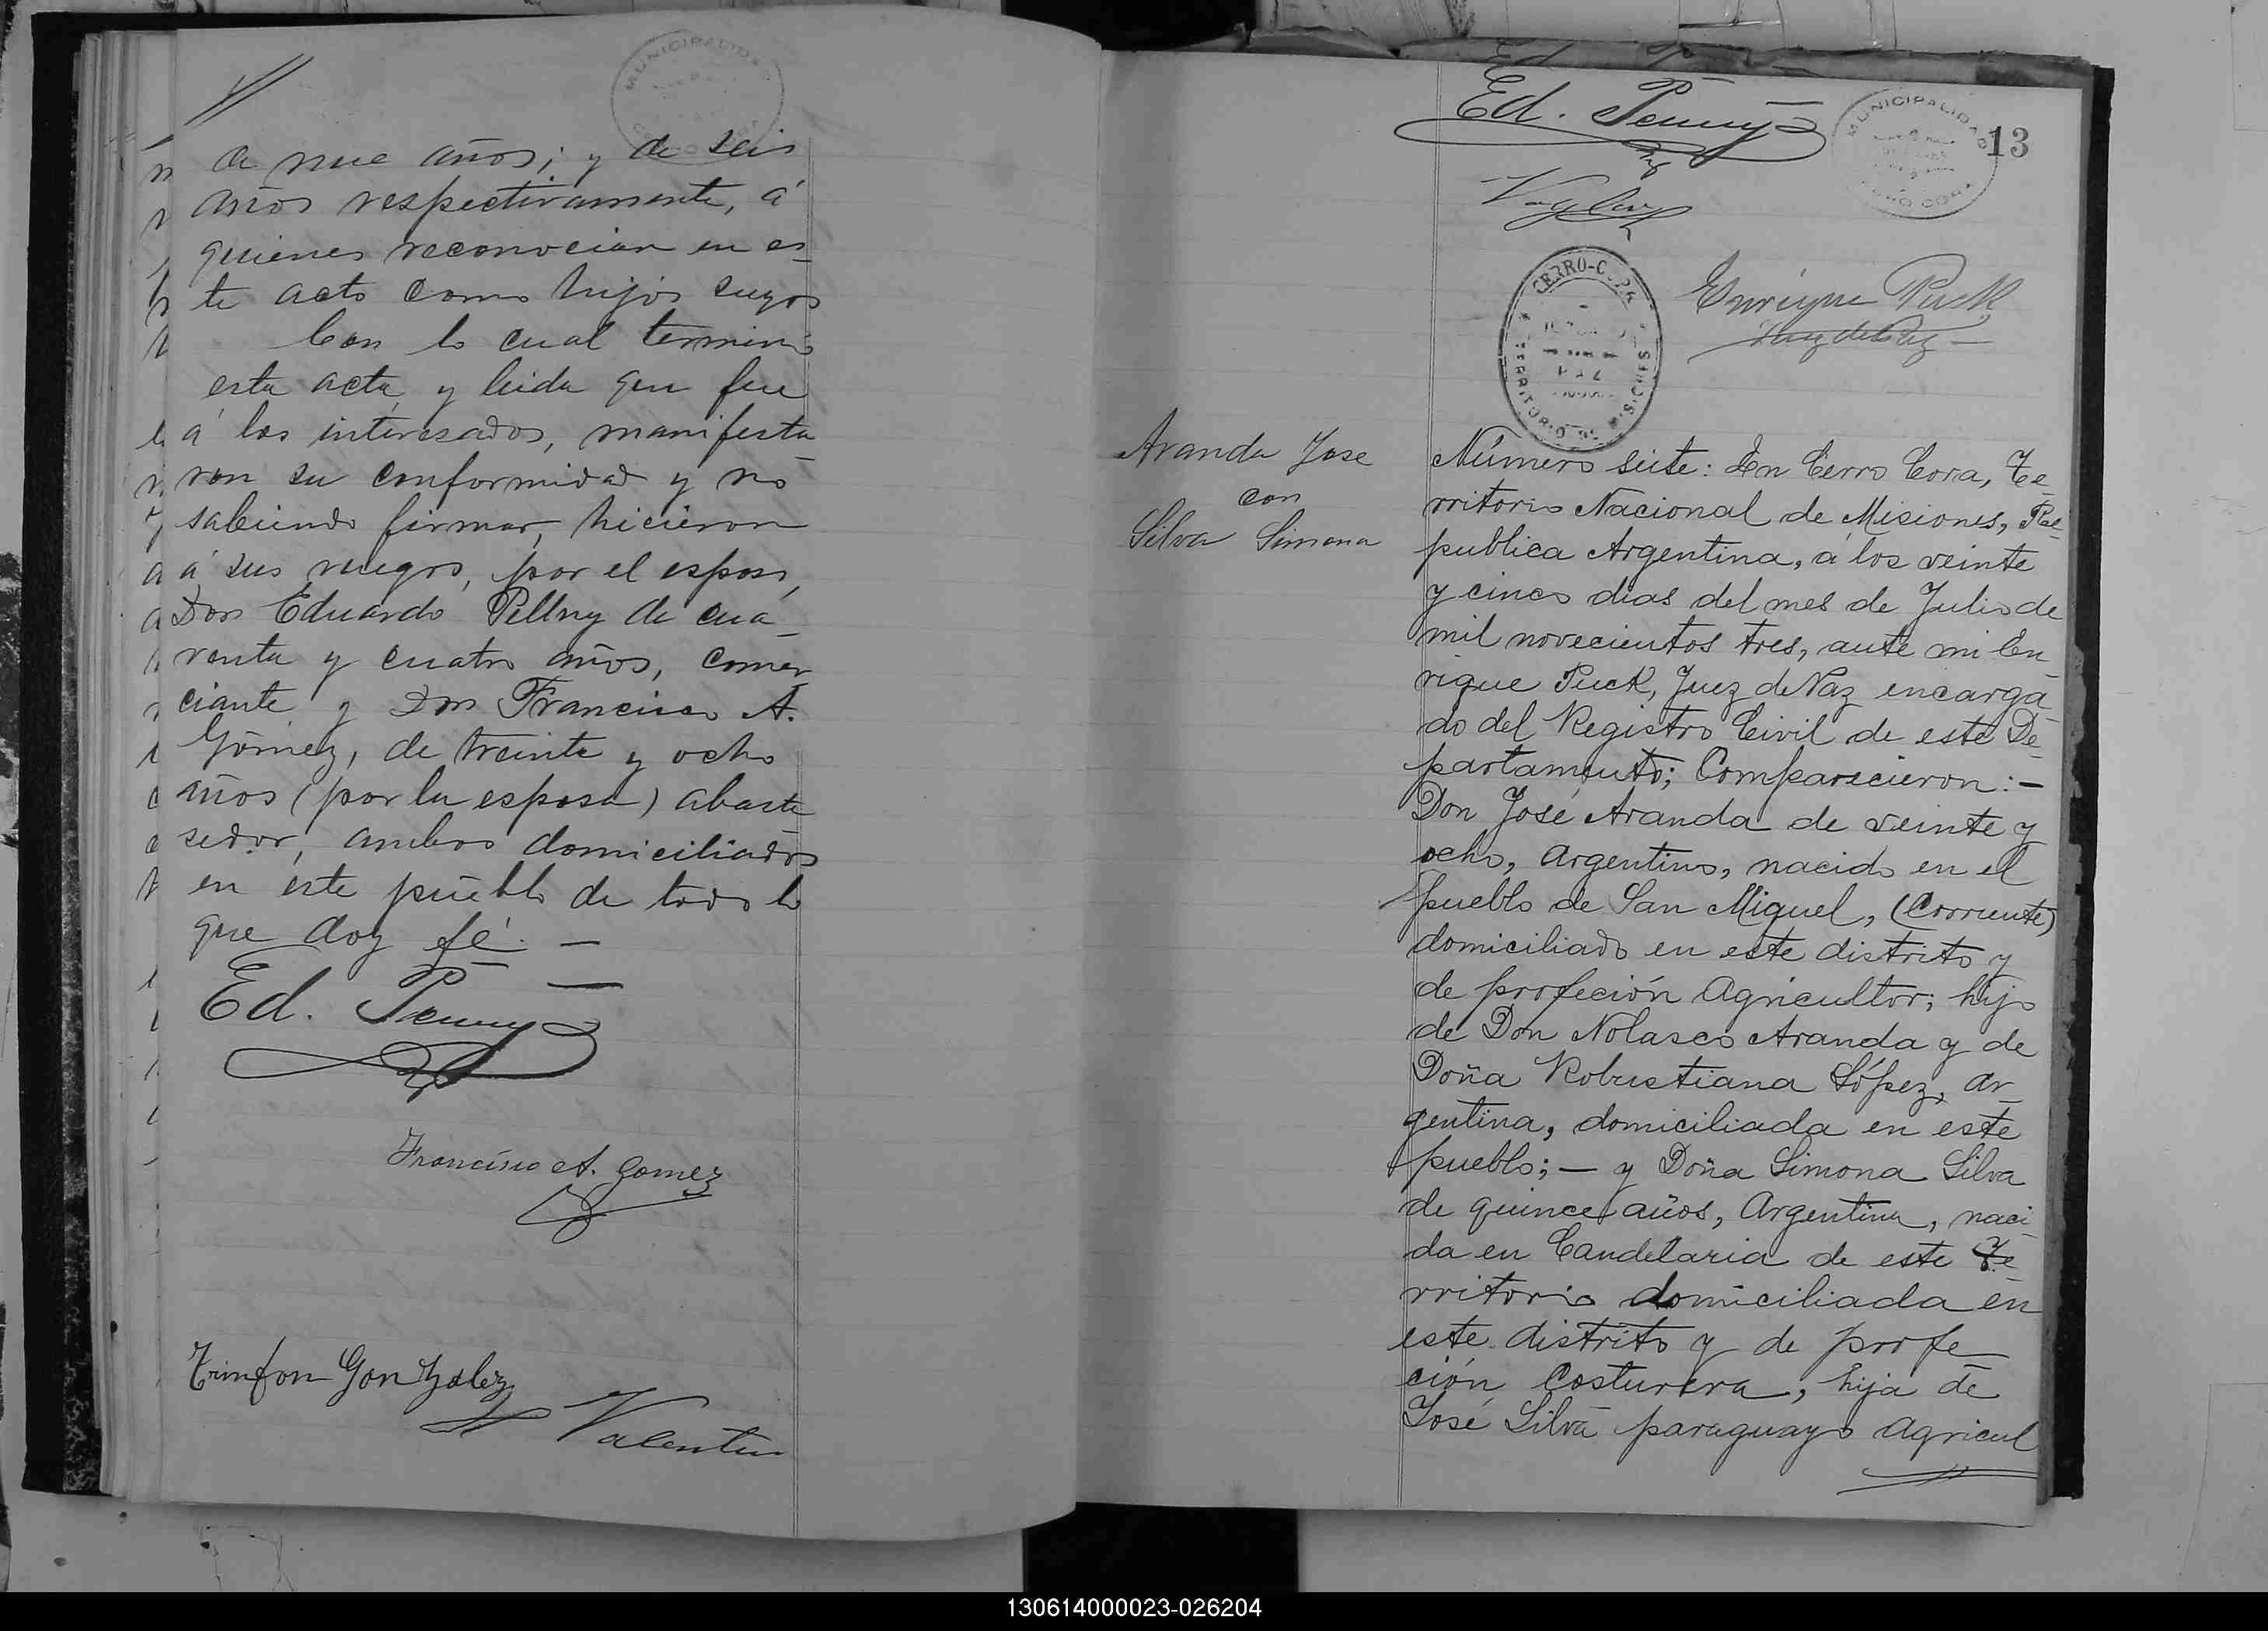 MUNICIPALIDAD
de nue años; y de seis
años respectivamente, á
quienes reconocian en es-
te acto como hijos suyos
Con lo cual terminó
esta acta, y leida que fue
á los interesados, manifesta-
ron su conformidad y no
sabiendo firmar, hicieron
á sus ruegos, por el esposo,
Don Eduardo Pellny de cua-
renta y cuatro años, comer-
ciante y Don Francisco A.
Gómez, de treinta y ocho
años (por la esposa) abaste
sedor, ambos domiciliados
en este pueblo de todo lo
que doy fé. —
Ed.
Francisco A. Gomez
Trinfon Gonzalez
Valentin
Ed.
MUNICIPALIDAD
13
CERRO-CORA
PAZ
TERRITORIO DE MISIONES
Enrique Puck
Juez de Paz
Aranda Jose
con
Silva Simona
Número siete: En Cerro Cora, Te-
rritorio Nacional de Misiones, Re-
publica Argentina, á los veinte
y cinco dias del mes de Julio de
mil novecientos tres, ante mi En
rique Puck, Juez de Paz encarga-
do del Registro Civil de este De-
partamento; Comparecieron: —
Don José Aranda de veinte y
ocho, Argentino, nacido en el
pueblo de San Miguel, (Corriente)
domiciliado en este distrito y
de profeción Agricultor; hijo
de Don Nolasco Aranda y de
Doña Robustiana López, Ar-
gentina, domiciliada en este
pueblo; — y Doña Simona Silva
de quince años, Argentina, naci-
da en Candelaria de este Te-
rritorio domiciliada en
este distrito y de profe-
ción Costurera, hija de
José Silva paraguayo agricul
130614000023-026204